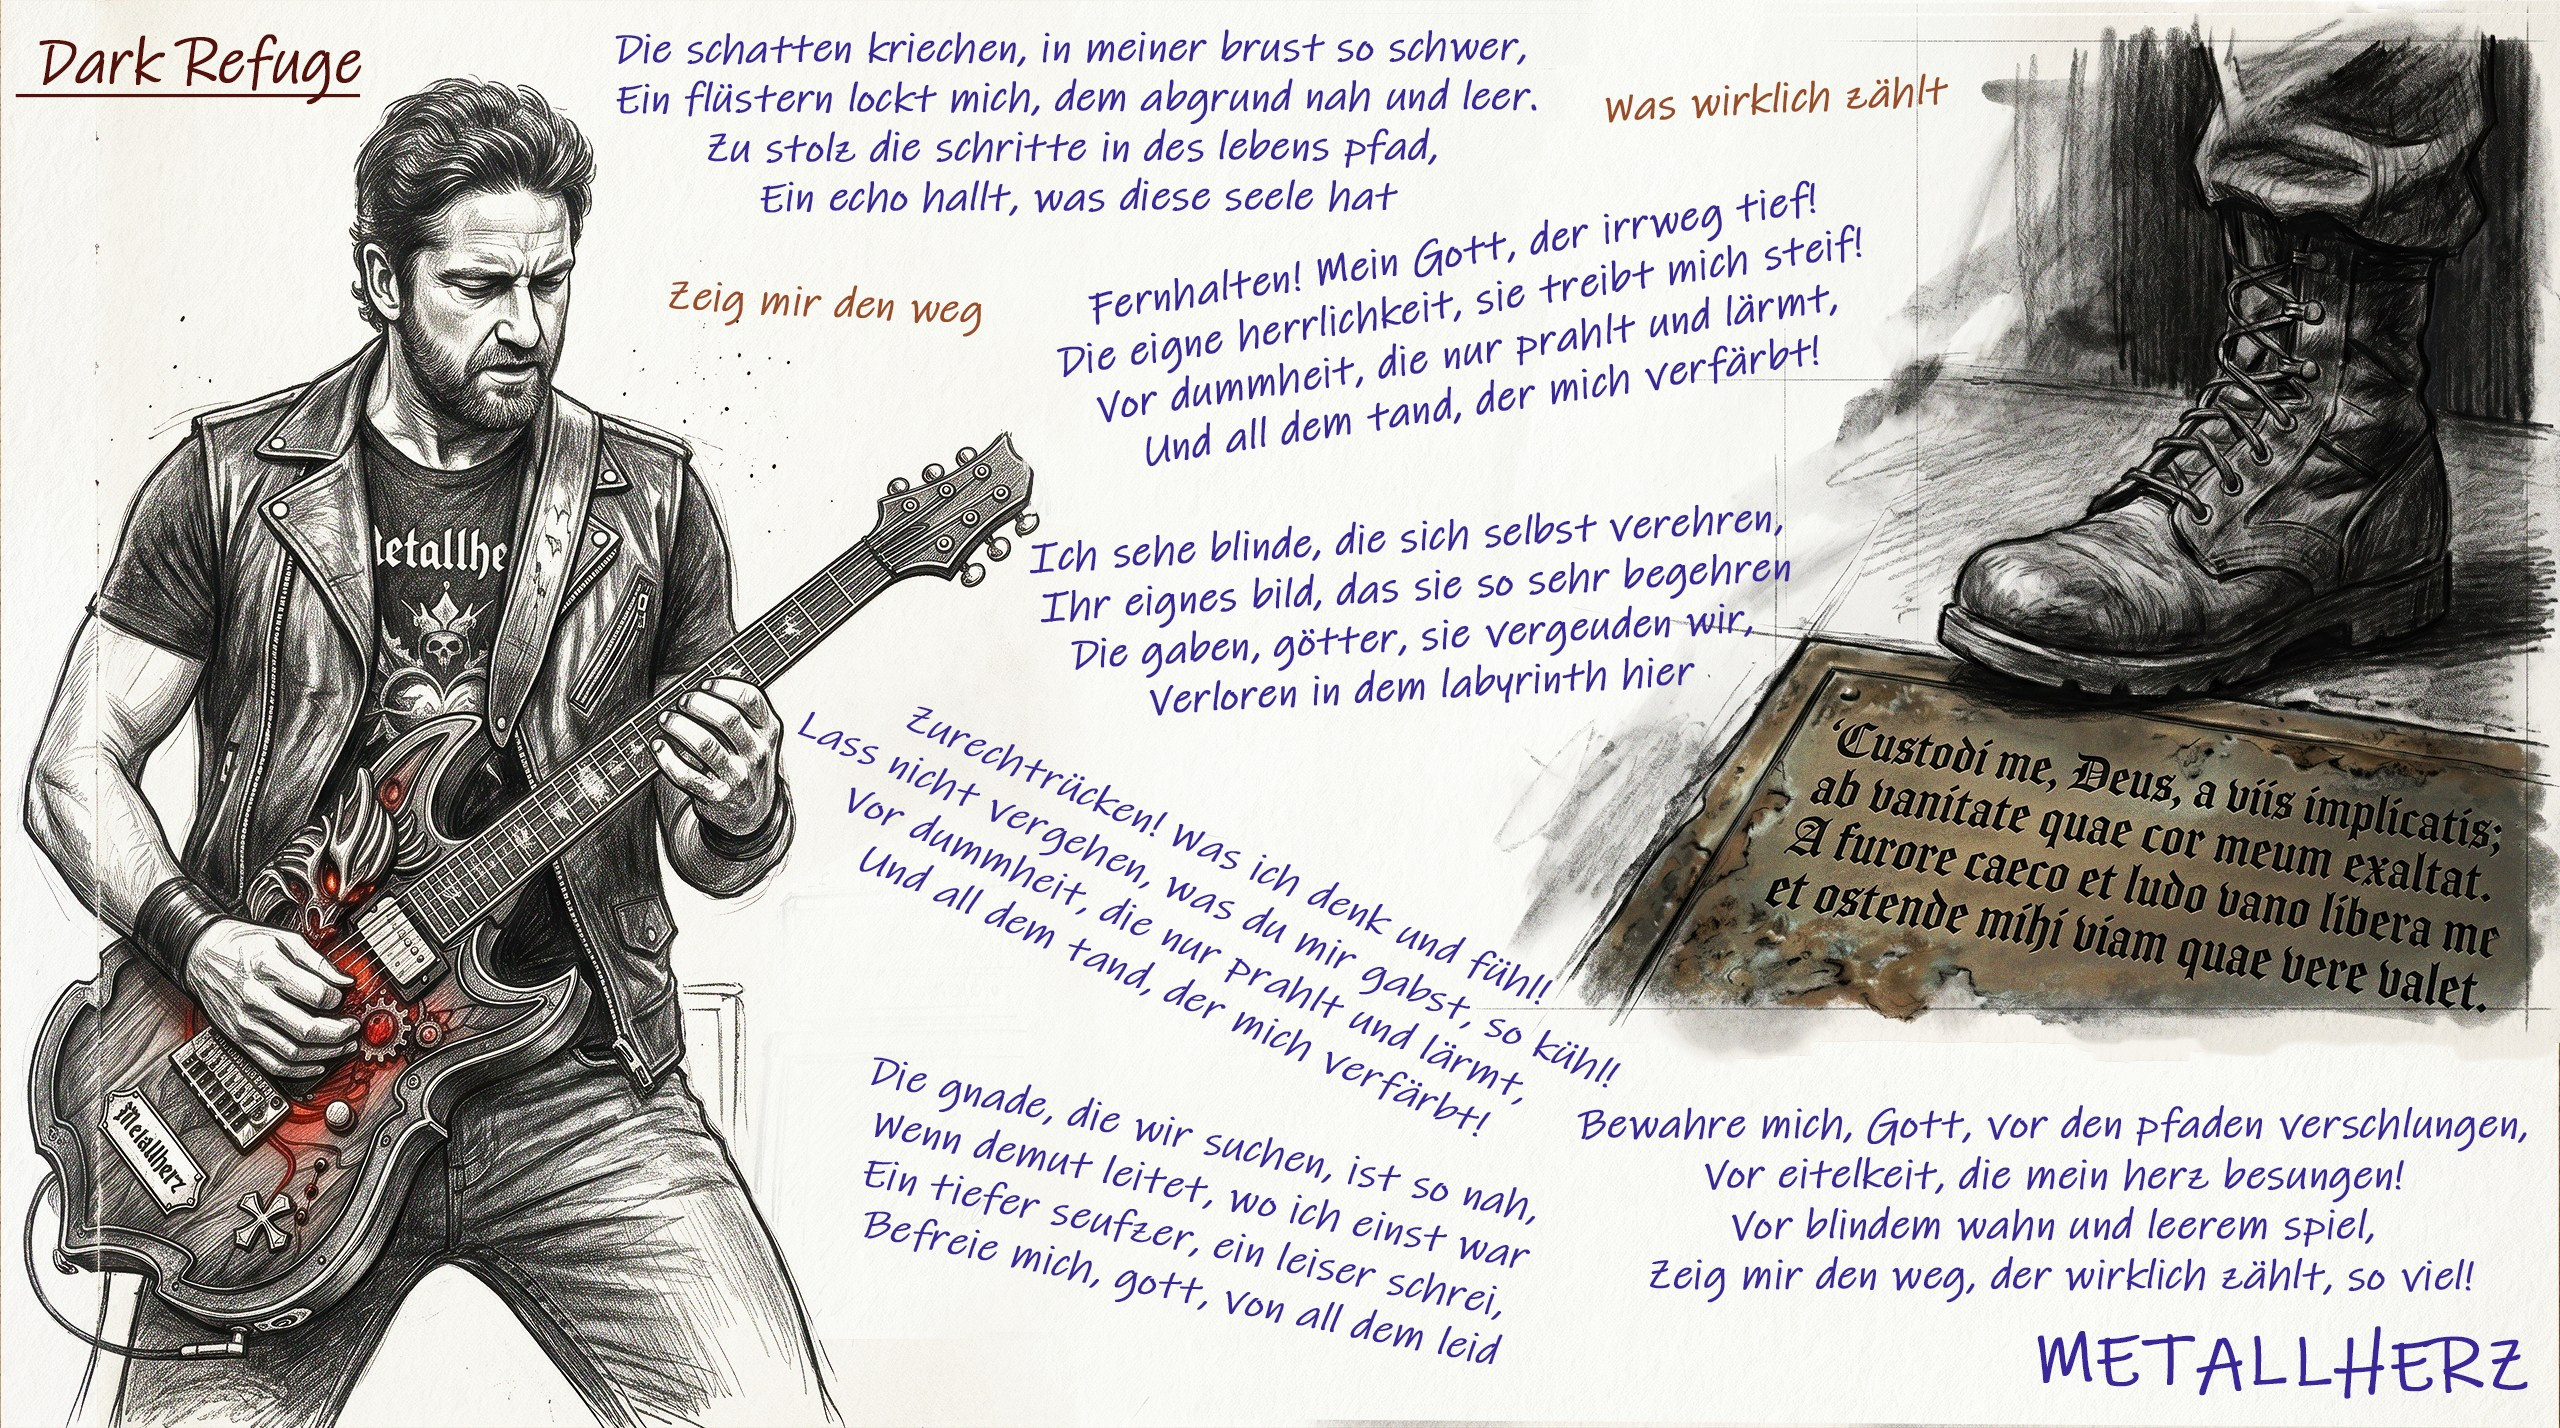 Dark Refuge
Die schatten kriechen, in meiner brust so schwer,
Ein flüstern lockt mich, dem abgrund nah und leer.
Zu stolz die schritte in des lebens pfad,
Ein echo hallt, was diese seele hat
Was wirklich zählt
Zeig mir den weg
Fernhalten! Mein Gott, der irrweg tief!
Die eigne herrlichkeit, sie treibt mich steif!
Vor dummheit, die nur prahlt und lärmt,
Und all dem tand, der mich verfärbt!
Ich sehe blinde, die sich selbst verehren,
Ihr eignes bild, das sie so sehr begehren
Die gaben, götter, sie vergeuden wir,
Verloren in dem labyrinth hier
Zurechtrücken! Was ich denk und fühl!
Lass nicht vergehen, was du mir gabst, so kühl!
Vor dummheit, die nur prahlt und lärmt,
Und all dem tand, der mich verfärbt!
Die gnade, die wir suchen, ist so nah,
Wenn demut leitet, wo ich einst war
Ein tiefer seufzer, ein leiser schrei,
Befreie mich, gott, von all dem leid
etallhe
Metallherz
'Custodi me, Deus, a viis implicatis;
ab vanitate quae cor meum exaltat.
A furore caeco et ludo vano libera me
et ostende mihi viam quae vere valet.
Bewahre mich, Gott, vor den pfaden verschlungen,
Vor eitelkeit, die mein herz besungen!
Vor blindem wahn und leerem spiel,
Zeig mir den weg, der wirklich zählt, so viel!
METALLHERZ